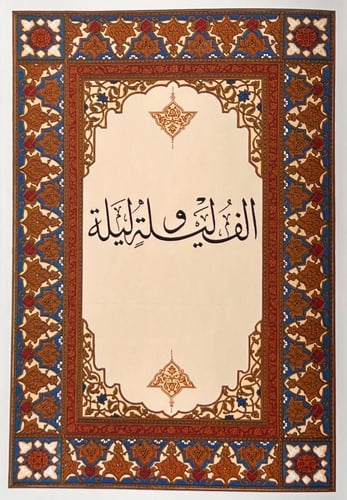 الفُ ليلةٍ و ليلة